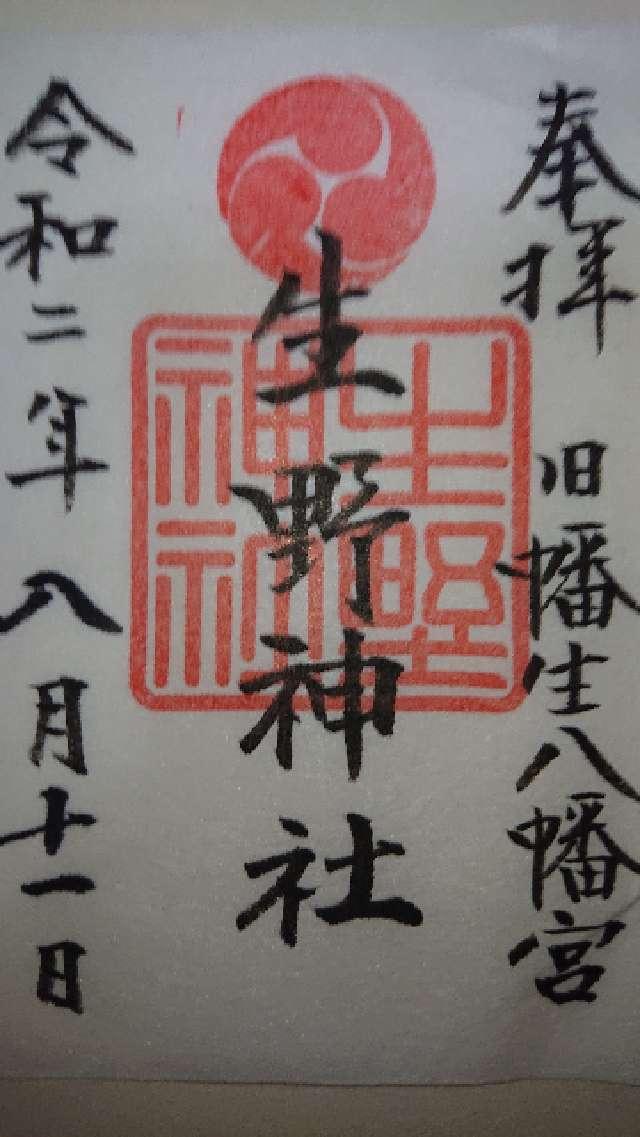 奉拝　旧幡生八幡宮
生野神社
生野神社
令和二年八月十一日